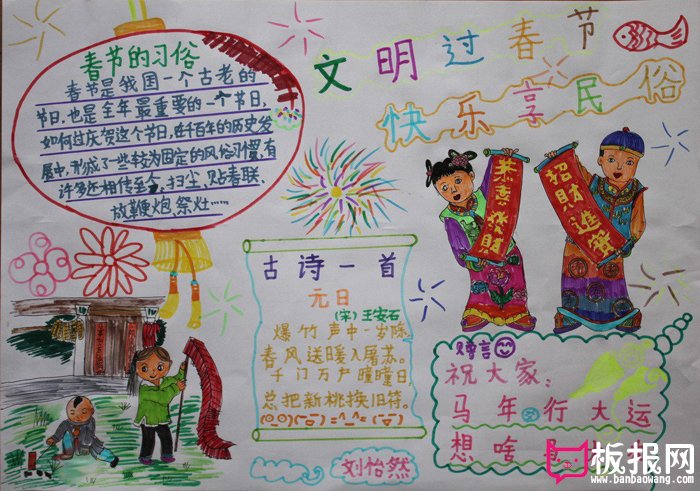 文明过春节
快乐享民俗
春节的习俗
春节是我国一个古老的
节日,也是全年最重要的一个节日,
如何过庆贺这个节日,在千百年的历史发
展中,形成了一些较为固定的风俗习惯,有
许多还相传至今,扫尘、贴春联、
放鞭炮、祭灶……
恭喜發財
招財進寶
古诗一首
元日
(宋)王安石
爆竹声中一岁除
春风送暖入屠苏。
千门万户曈曈日,
总把新桃换旧符。
赠言
祝大家:
马年 行大运
想啥
刘怡然
板报网
www.banbaowang.com